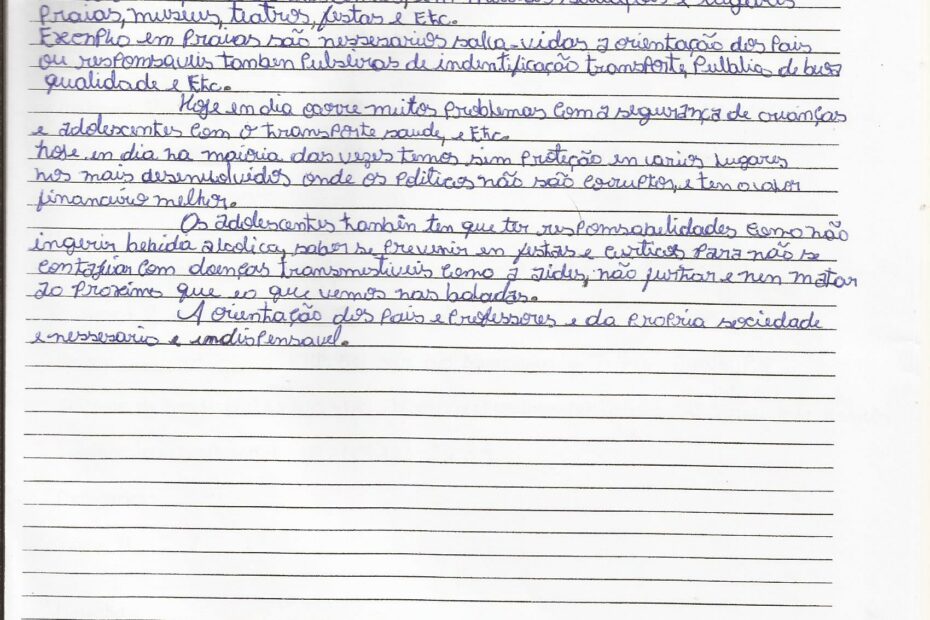 Praias, museus, teatros, festas e Etc.
Exenplho em Praias são nessesarios salva-vidas a orientação dos Pais
ou responsaveis tanben Pulseiras de indentificação transporte, Publico de boa
qualidade e Etc.
Hoje en dia ocorre muitos Problemas Com a segurança de crianças
e adolescentes Com o transporte saude, e Etc.
hoje en dia na maioria das vezes temos sim Proteção en varios lugares
nos mais desenvolvidos onde os Politicos não são Corruptos, e ten o valor
financeiro melhor.
Os adolescentes tanbên ten que ter responsabilidades Como não
ingerir bebida alcolica, saber se Prevenir en festas e Para não se
Com doenças Como a aides, não furtar e nen matar
ao Proximo que e o que vemos nas baladas.
A orientação dos Pais e Professores e da Propria sociedade
e nessesario e indispensavel.